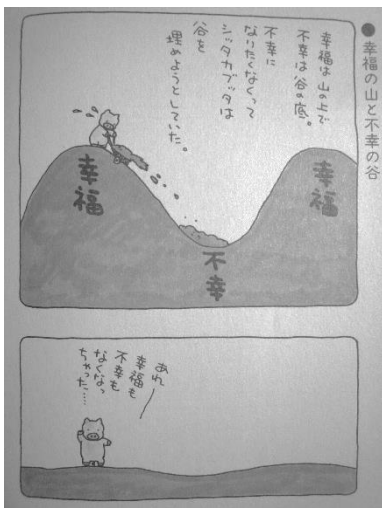 幸福の山と不幸の谷
幸福は山の上で
不幸は谷の底。
不幸に
なりたくなくって
シッタカブッタは
谷を
埋めようとしていた。
幸福
不幸
幸福
あれ
幸福も
不幸も
なくなっ
ちゃった…